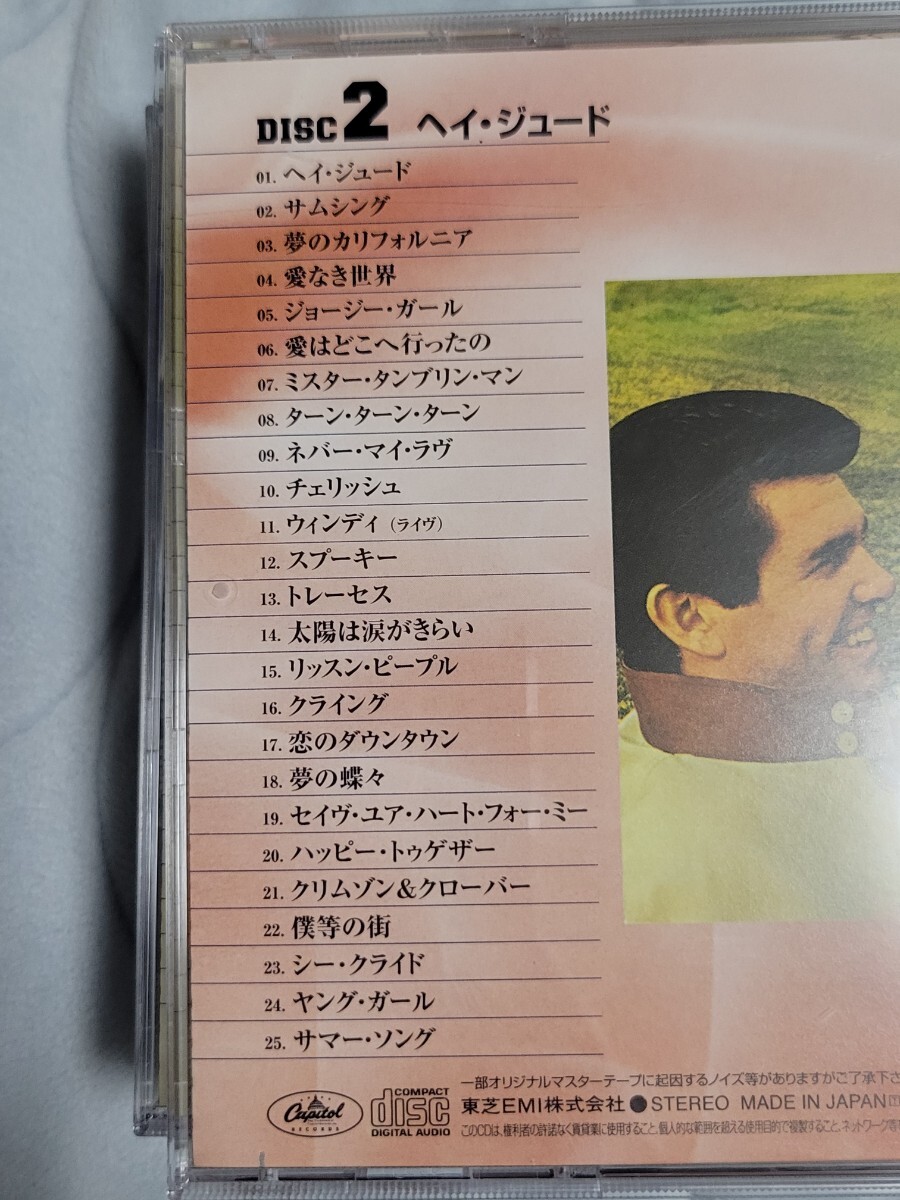 DISC 2 ヘイ・ジュード
01. ヘイ・ジュード
02. サムシング
03. 夢のカリフォルニア
04. 愛なき世界
05. ジョージー・ガール
06. 愛はどこへ行ったの
07. ミスター・タンブリン・マン
08. ターン・ターン・ターン
09. ネバー・マイ・ラヴ
10. チェリッシュ
11. ウィンディ（ライヴ）
12. スプーキー
13. トレーセス
14. 太陽は涙がきらい
15. リッスン・ピープル
16. クライング
17. 恋のダウンタウン
18. 夢の蝶々
19. セイヴ・ユア・ハート・フォー・ミー
20. ハッピー・トゥゲザー
21. クリムゾン＆クローバー
22. 僕等の街
23. シー・クライド
24. ヤング・ガール
25. サマー・ソング
一部オリジナルマスターテープに起因するノイズ等がありますがご了承下さ
Capitol RECORDS COMPACT disc DIGITAL AUDIO 東芝EMI株式会社 ● STEREO MADE IN JAPAN
このCDは、権利者の許諾なく賃貸業に使用すること、個人的な範囲を超える使用目的で複製すること、ネットワーク等